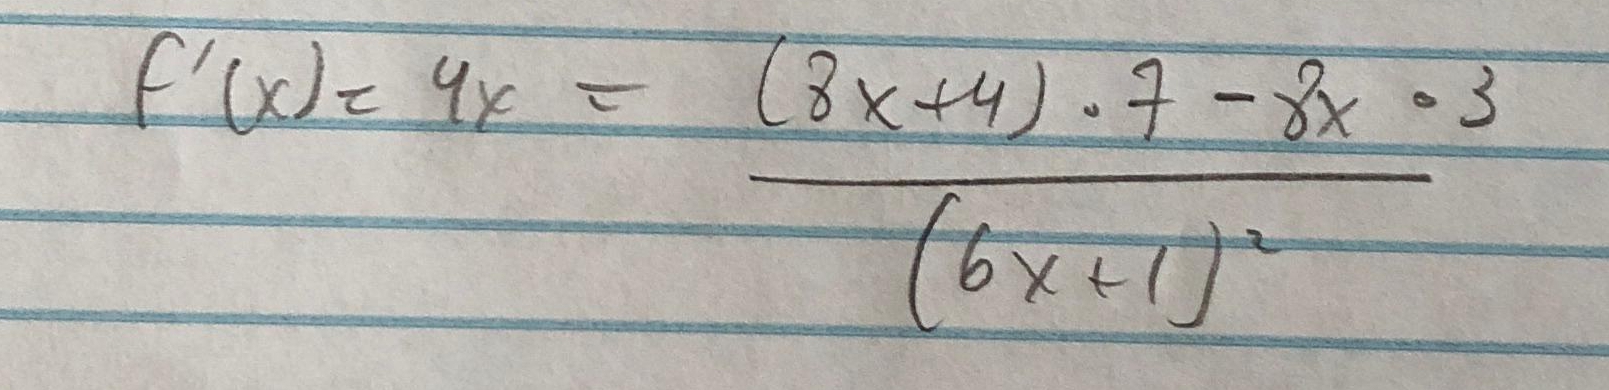 f'(x) = 4x = (8x+4) · 7 - 8x · 3
(6x+1)²